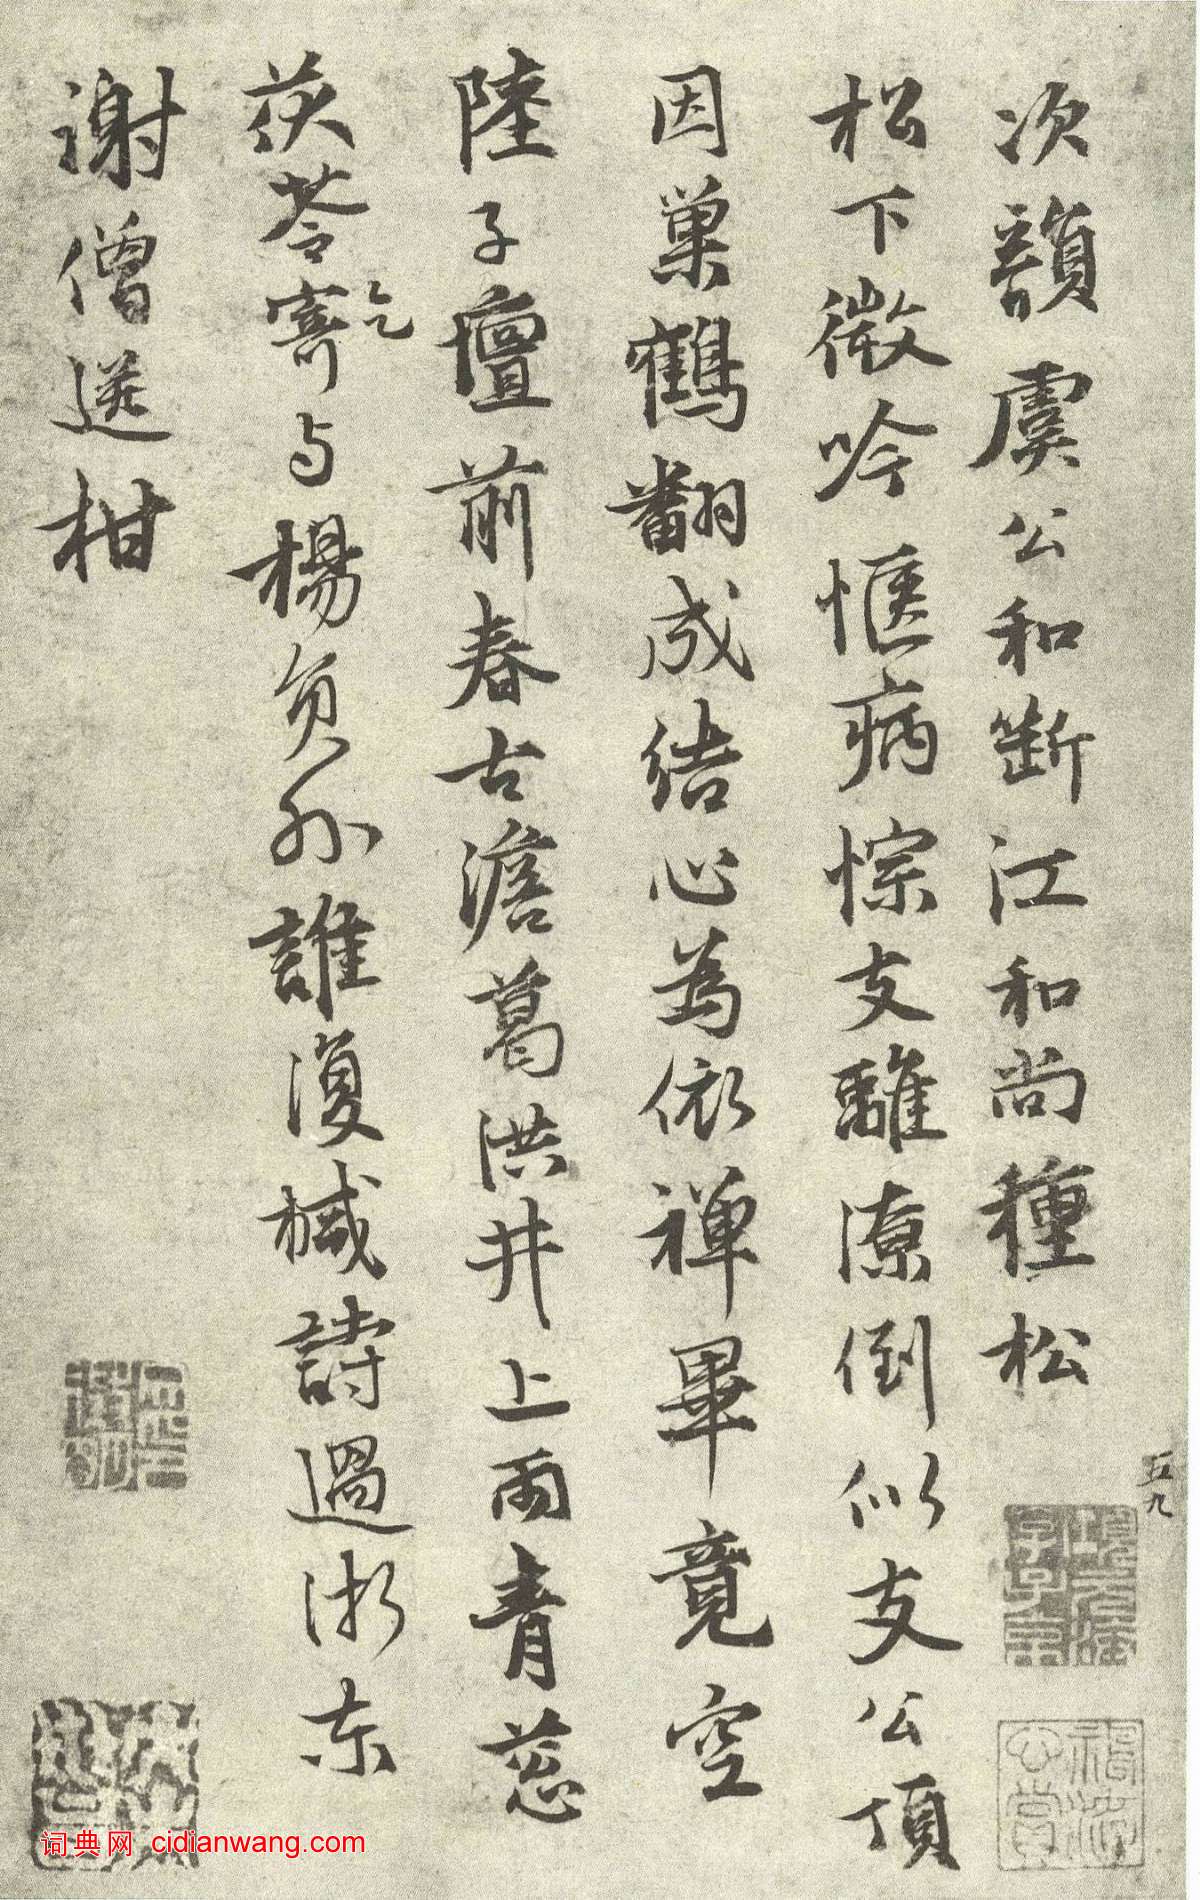 次韻虞公和斷江和尚種松
松下微吟愜病悰支離潦倒似支公頂
因巢鶴翻成結心為依禪畢竟空
陸子壇前春古澹葛洪井上雨青葱
茯苓乞寄与楊負外誰復械詩過浙东
謝僧送柑
五九
词典网 cidianwang.com